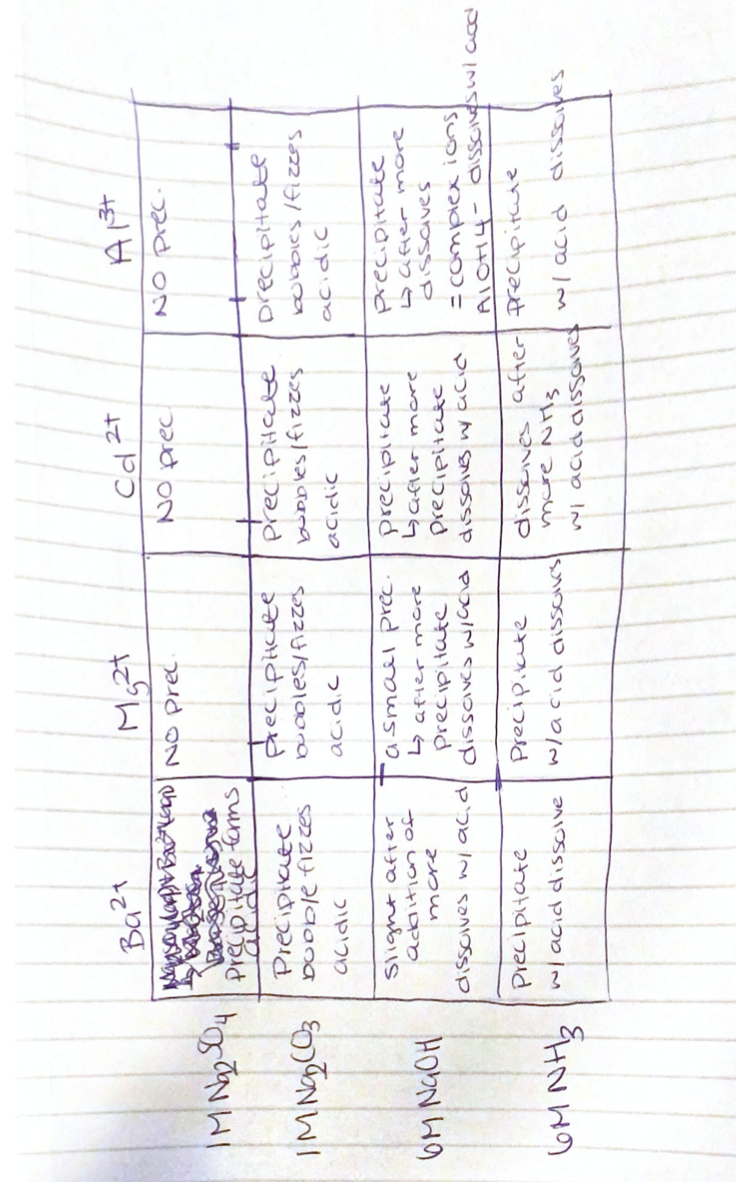 Ba2+ Mg2+ Cd2+ Al3+
1M Na2SO4
precipitate forms
acidic
NO prec.
NO prec.
NO prec.
1M Na2CO3
Precipitate
bubble fizzes
acidic
precipitate
bubbles/fizzes
acidic
precipitate
bubbles/fizzes
acidic
precipitate
bubbles/fizzes
acidic
6M NaOH
slight after
addition of
more
dissolves w/ acid
a small prec.
↳ after more
precipitate
dissolves w/acid
precipitate
↳ after more
precipitate
dissolves w/ acid
precipitate
↳ after more
dissolves
= complex ions
AlOH4- dissolves w/ acid
6M NH3
Precipitate
w/ acid dissolve
Precipitate
w/ acid dissolves
dissolves after
more NH3
w/ acid dissolves
precipitate
w/ acid dissolves